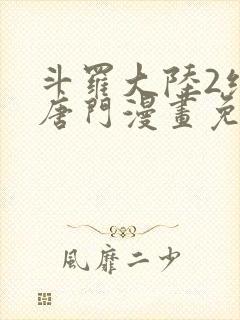 斗羅大陸2
唐門漫畫免
風靡二少